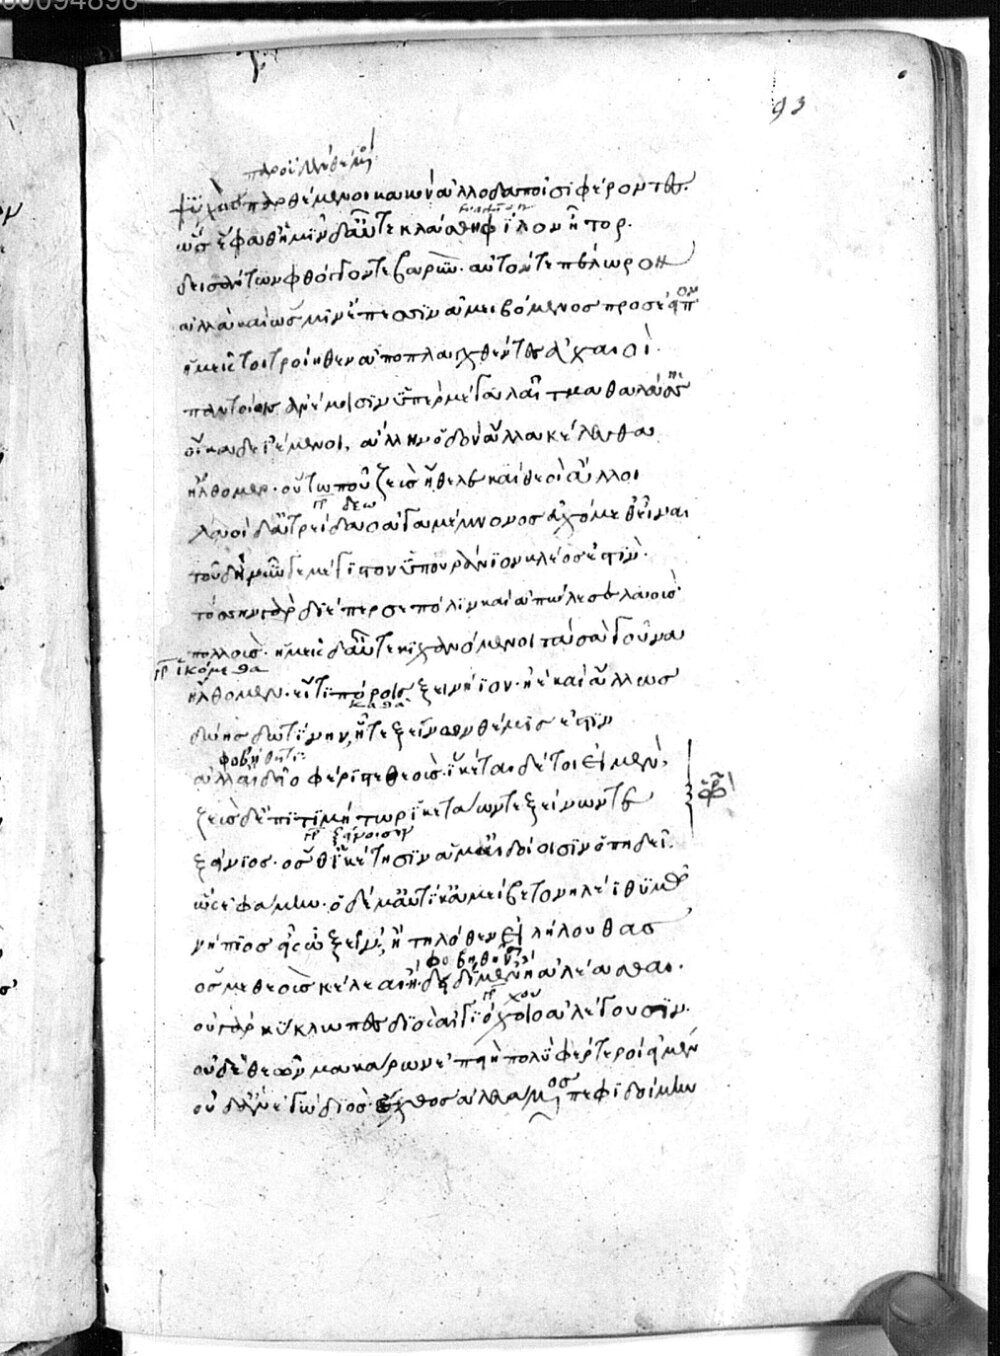 93
ψυχὰς παρθέμενοι κακὸν ἀλλοδαποῖσι φέροντες.
ὣς ἔφαθ' ἡμῖν δ' αὖτε κλάσθη φίλον ἦτορ.
δεισάντων φθόγγόν τε βαρὺν· αὐτόν τε πέλωρον
ἀλλὰ καὶ ὥς μιν ἔπεσσιν ἀμειβόμενος προσέειπον
ἡμεῖς τοι τροίηθεν ἀποπλαγχθέντες ἀχαιοὶ.
παντοίοις ἀνέμοισιν ὑπὲρ μέγα λαῖτμα θαλάσσης
οἴκαδε ἱέμενοι, ἄλλην ὁδὸν ἄλλα κέλευθα
ἤλθομεν· οὕτω που ζεὺς ἤθελε καὶ θεοὶ ἄλλοι
λαοὶ δ' ἀτρείδαο ἀγαμέμνονος εὐχόμεθ' εἶναι
τοῦ δὴ νῦν γε μέγιστον ὑπουράνιον κλέος ἐστὶν.
τόσσην γὰρ διέπερσε πόλιν καὶ ἀπώλεσε λαοὺς
πολλοὺς. ἡμεῖς δ' αὖτε κιχανόμενοι τὰ σὰ γοῦνα
γρ ἱκόμεθα
ἤλθομεν· εἴ τι πόροις ξεινήϊον· ἠὲ καὶ ἄλλως
δώης δωτίνην, ἥτε ξείνων θέμις ἐστὶν
φοβήθητι
ἀλλ' αἰδεῖο φέριστε θεοὺς· ἱκέται δέ τοι εἰμέν,
ζεὺς δ' ἐπιτιμήτωρ ἱκετάων τε ξείνων τε
ξείνιος· ὅς θ' ἱκέτησιν ἅμ' αἰδοίοισιν ὀπηδεῖ.
ὣς ἐφάμην· ὁ δέ μ' αὐτίκ' ἀμείβετο νηλέϊ θυμῷ
νήπιος εἰς ὦ ξεῖν', ἢ τηλόθεν εἰλήλουθας
ὅς με θεοὺς κέλεαι ἢ δειδίμεν ἢ ἀλέασθαι.
οὐ γὰρ κύκλωπες διὸς αἰγιόχοιο ἀλέγουσιν.
οὐδὲ θεῶν μακάρων ἐπειὴ πολὺ φέρτεροί εἰμεν
οὐδ' ἂν ἐγὼ διὸς ἔχθος ἀλευάμενος πεφιδοίμην